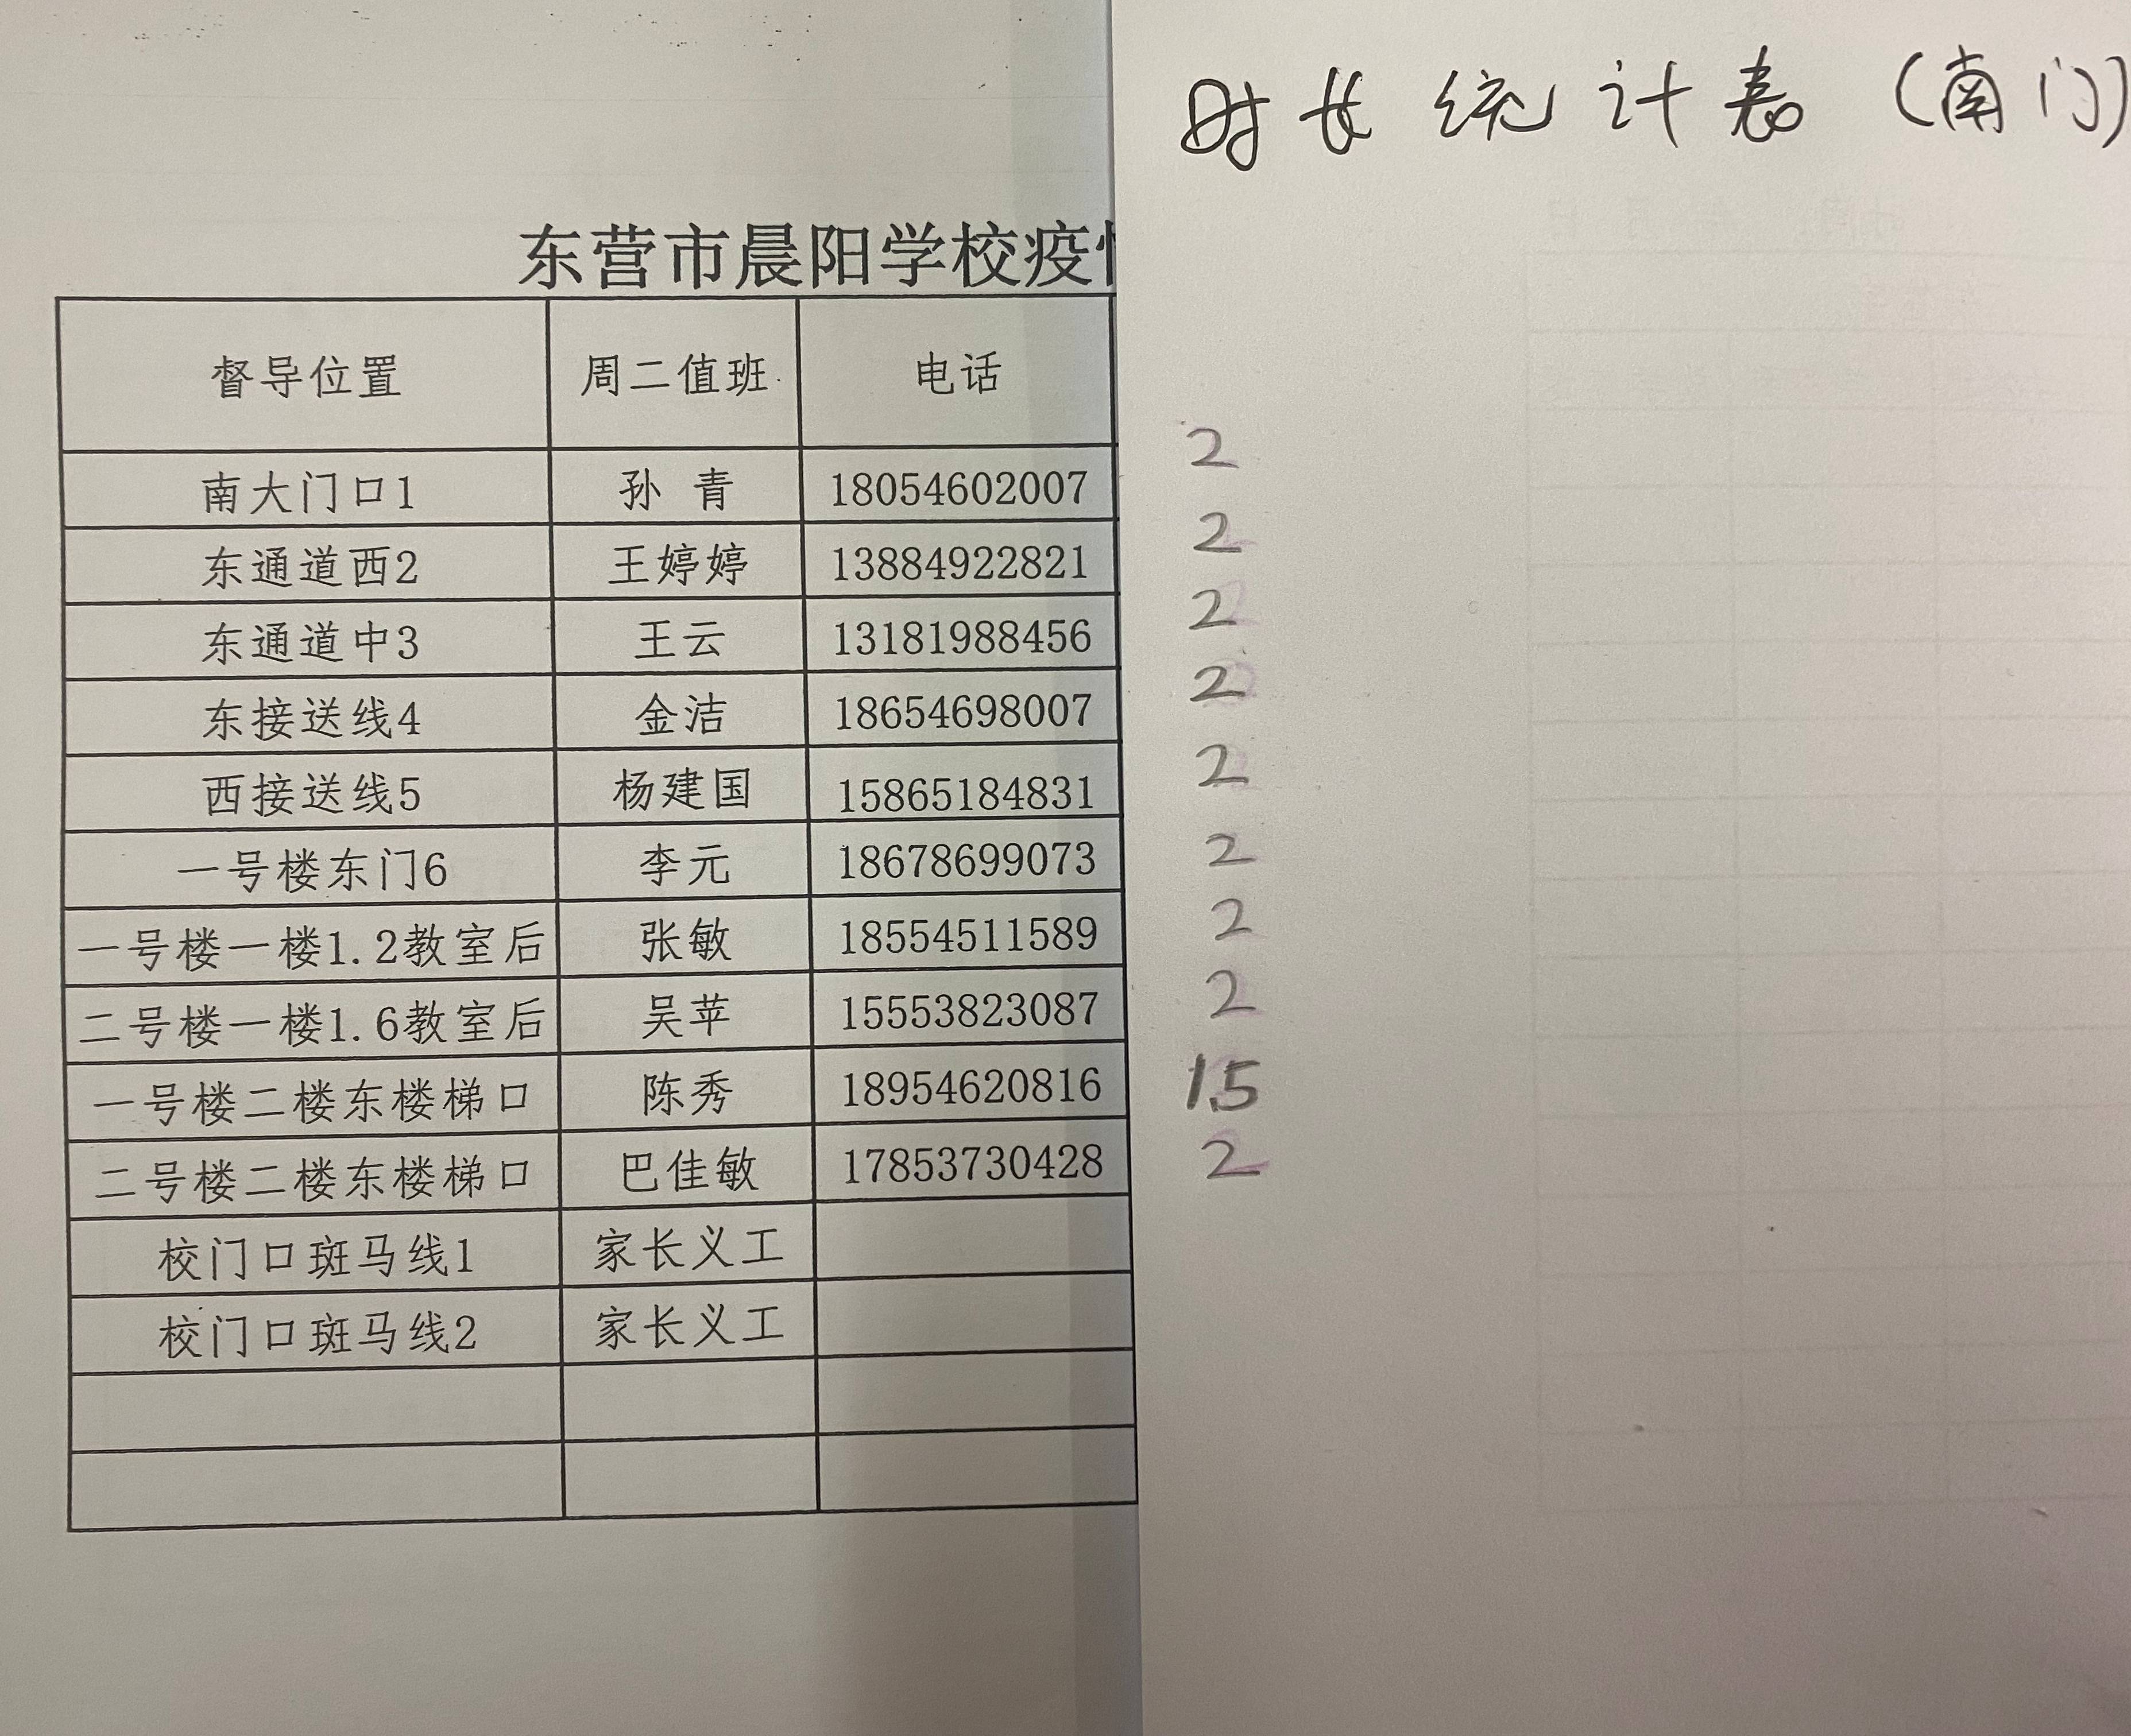 时长统计表(南门)
东营市晨阳学校疫
督导位置 周二值班 电话
南大门口1 孙 青 18054602007 2
东通道西2 王婷婷 13884922821 2
东通道中3 王云 13181988456 2
东接送线4 金洁 18654698007 2
西接送线5 杨建国 15865184831 2
一号楼东门6 李元 18678699073 2
一号楼一楼1.2教室后 张敏 18554511589 2
二号楼一楼1.6教室后 吴苹 15553823087 2
一号楼二楼东楼梯口 陈秀 18954620816 1.5
二号楼二楼东楼梯口 巴佳敏 17853730428 2
校门口斑马线1 家长义工
校门口斑马线2 家长义工